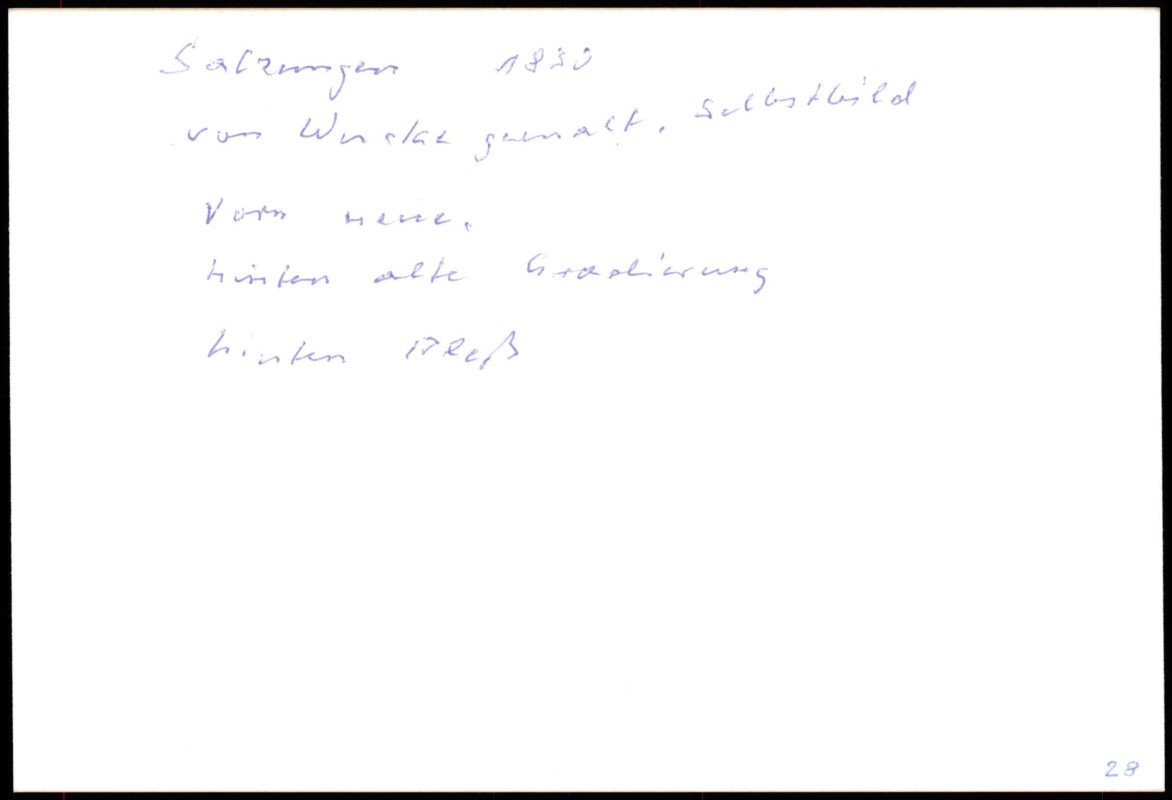 Salzungen 1830
von gemalt. Selbstbild
Vorn neue.
hinten alte Gradierung
hinten Pleß
28